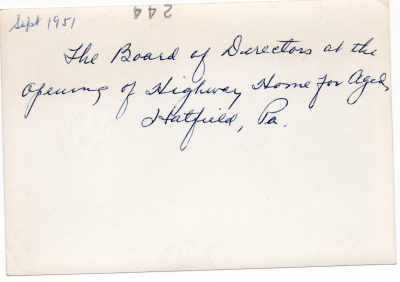 Sept 1951
244
The Board of Directors at the
opening of Highway Home for Aged,
Hatfield, Pa.